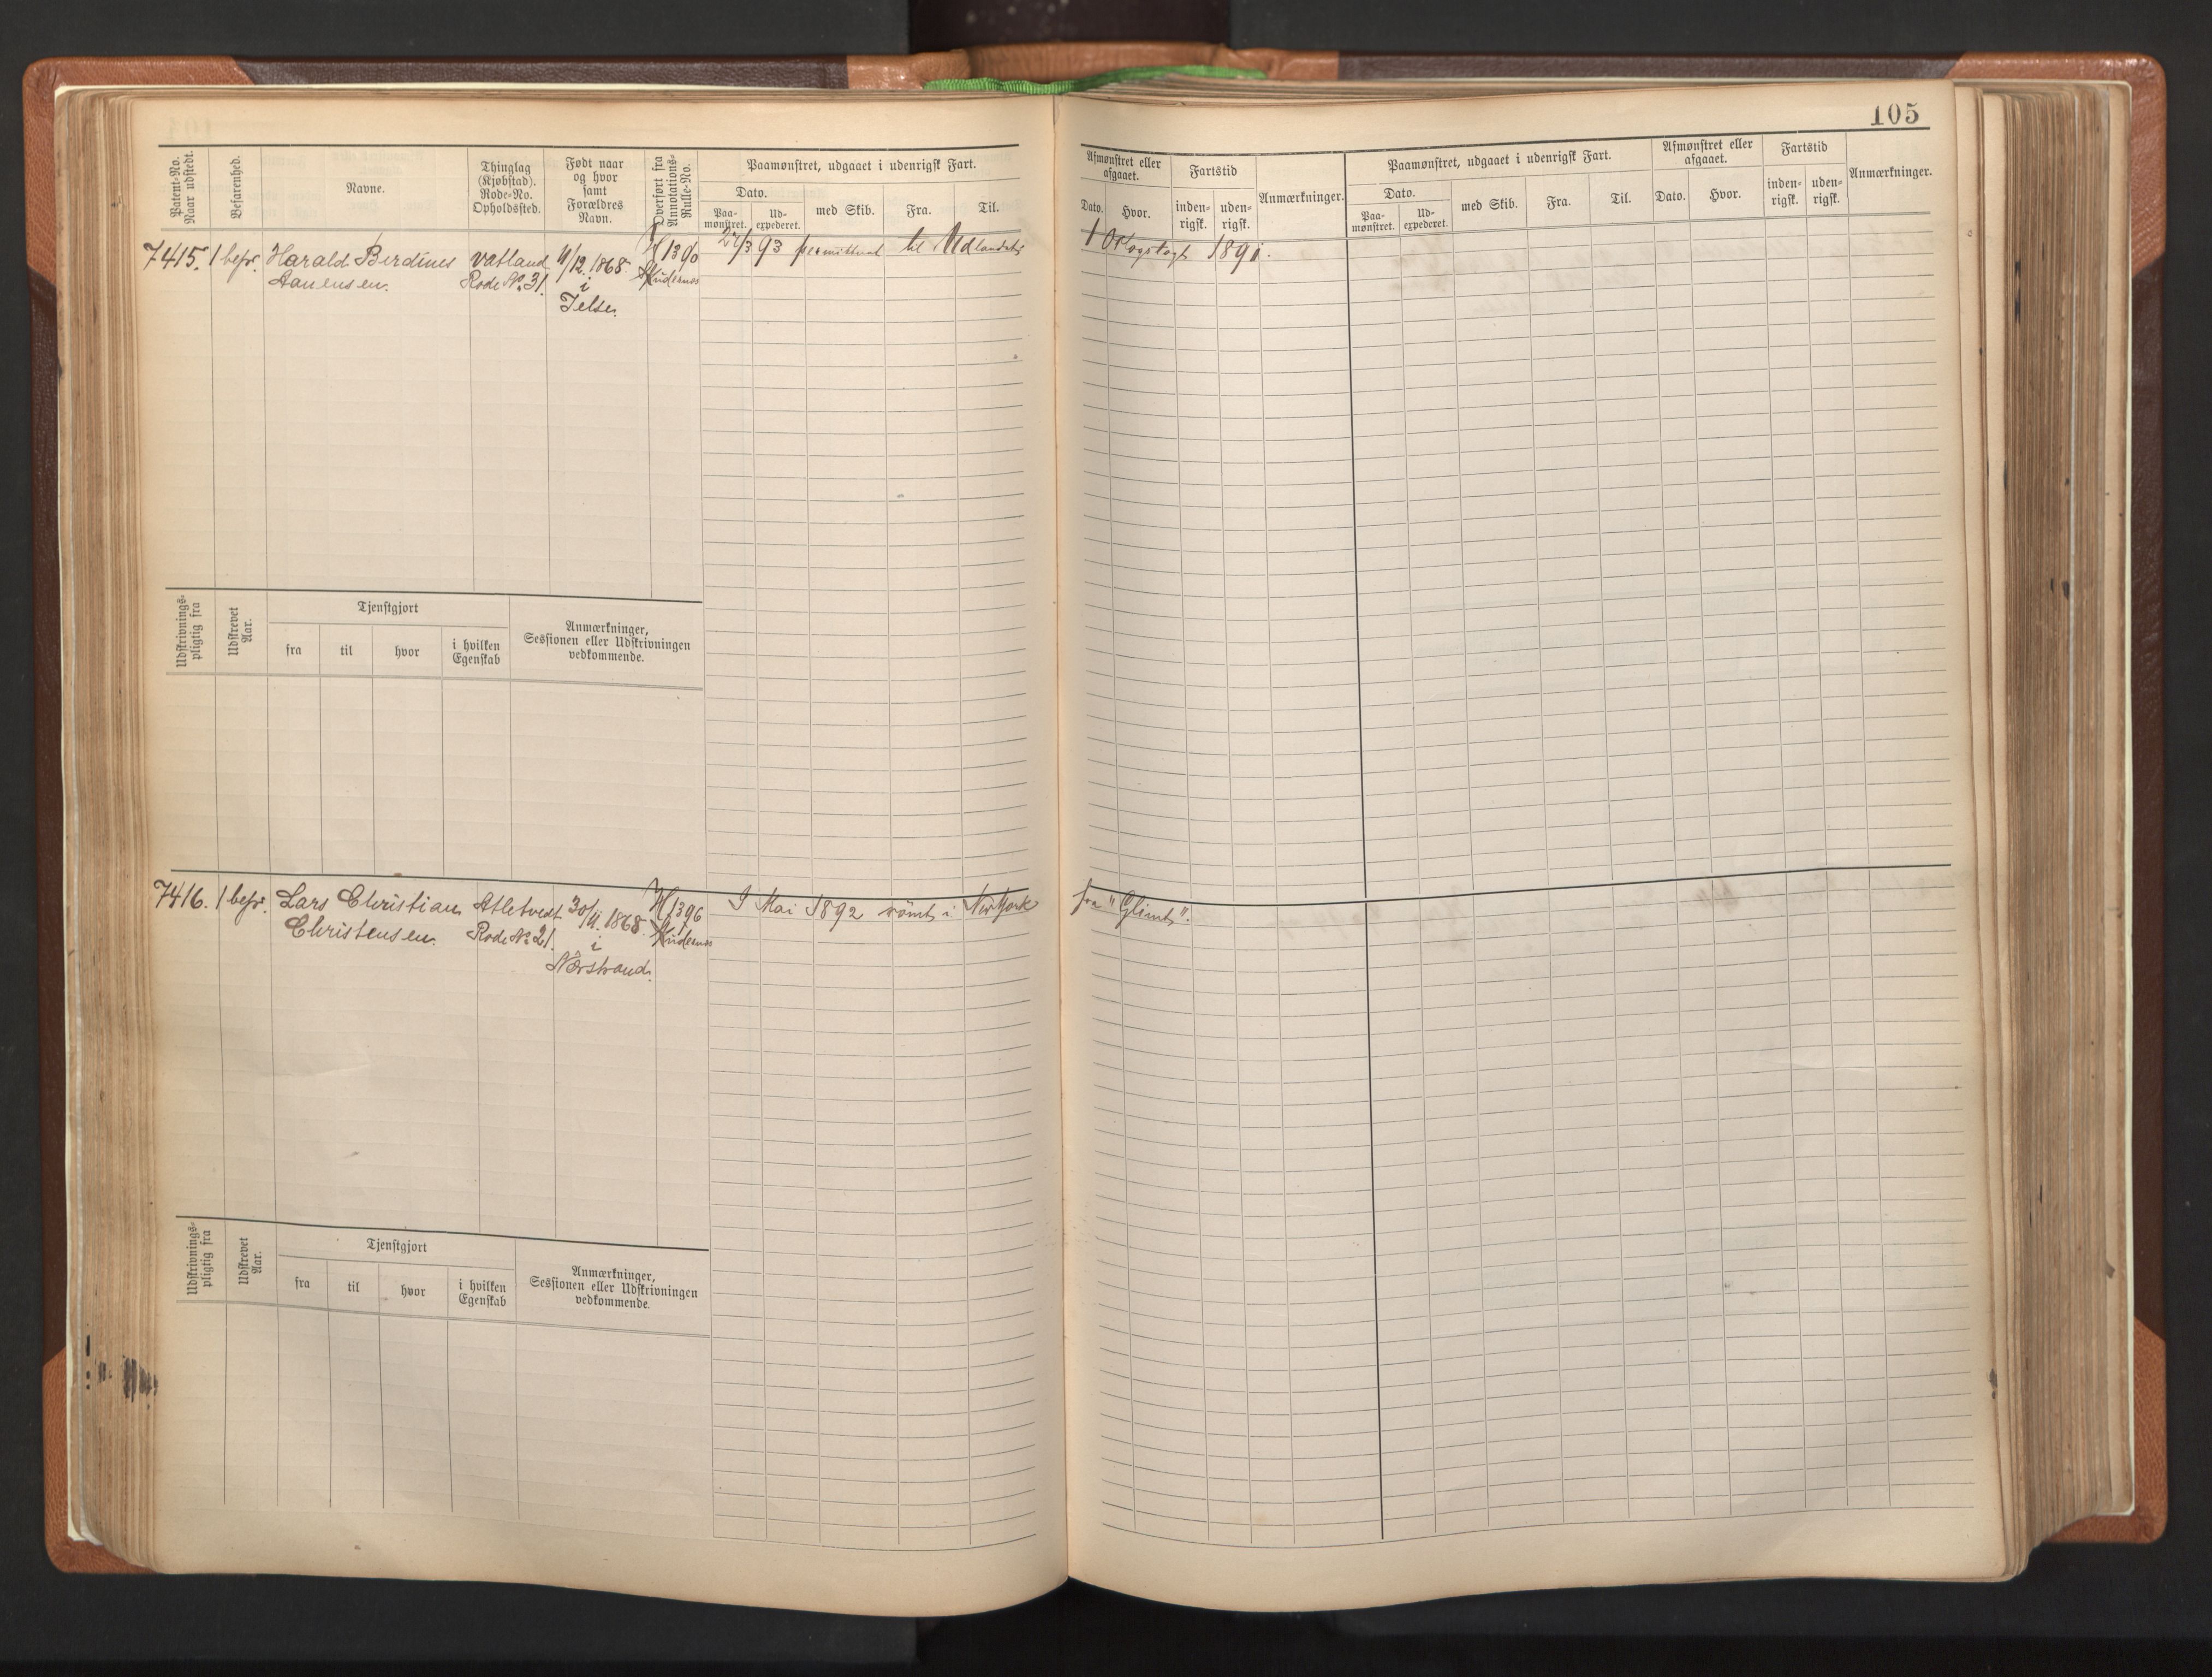 105
Patent-No.
Naar udstedt.
Befarenhed.
Navne.
Thinglag
(Kjøbstad).
Rode-No.
Opholdssted.
Født naar
og hvor
samt
Forældres
Navn.
Overført fra
Annotations-
Rulle-No.
Paamønstret, udgaaet i udenrigsk Fart.
Dato.
Paa-
mønstret.
Ud-
expederet.
med Skib.
Fra.
Til.
Afmønstret eller
afgaaet.
Dato.
Hvor.
Fartstid
inden-
rigsk.
uden-
rigsk.
Anmærkninger.
Paamønstret, udgaaet i udenrigsk Fart.
Dato.
Paa-
mønstret.
Ud-
expederet.
med Skib.
Fra.
Til.
Afmønstret eller
afgaaet.
Dato.
Hvor.
Fartstid
inden-
rigsk.
uden-
rigsk.
Anmærkninger.
7415. 1 befr. Harald Berdines Vatland 11/12. 1868. 1390 27/3 93 permitteret til Udlandet 1 Orlogstogt 1891.
Aanensen. Rode No. 31. i
Jelse.
Udskrivnings-
pligtig fra
Udskrevet
Aar.
Tjenstgjort
fra
til
hvor
i hvilken
Egenskab
Anmærkninger,
Sessionen eller Udskrivningen
vedkommende.
7416. 1 befr. Lars Christian Atletvedt 30/11. 1868 1396 I Mai 1892 römt i New York fra "Glimt".
Christensen. Rode No. 21. i
Nærstrand.
Udskrivnings-
pligtig fra
Udskrevet
Aar.
Tjenstgjort
fra
til
hvor
i hvilken
Egenskab
Anmærkninger,
Sessionen eller Udskrivningen
vedkommende.